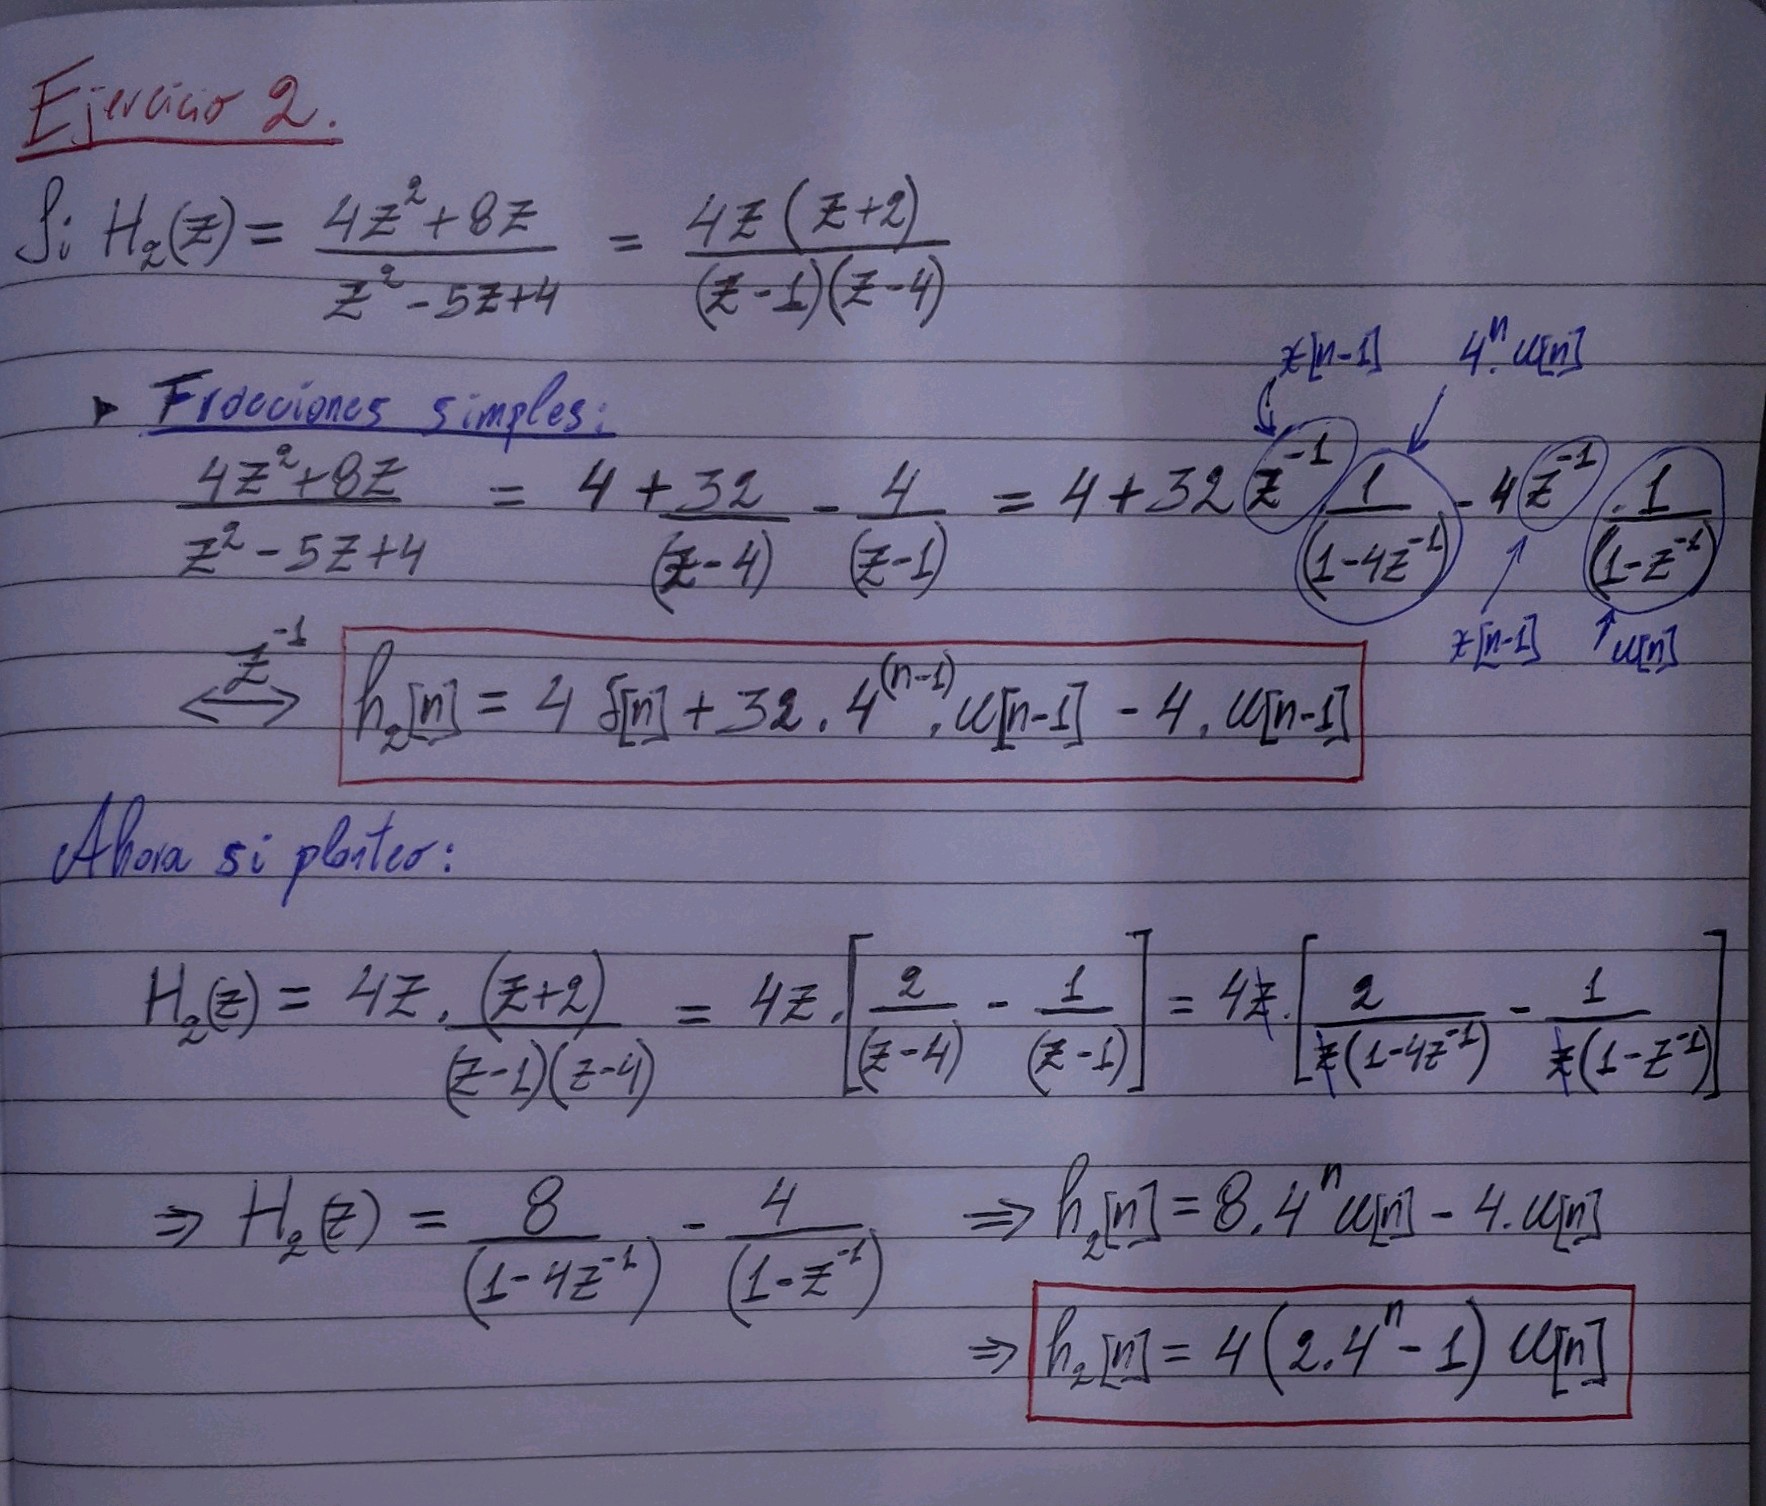 Ejercicio 2.
Si H₂(z) = (4z² + 8z)/(z² - 5z + 4) = 4z(z+2)/((z-1)(z-4))
▸ Fracciones simples:
x[n-1] 4ⁿ.u[n]
(4z² + 8z)/(z² - 5z + 4) = 4 + 32/(z-4) - 4/(z-1) = 4 + 32 z⁻¹ 1/(1-4z⁻¹) - 4 z⁻¹ . 1/(1-z⁻¹)
x[n-1] u[n]
z⁻¹ ⟺ h₂[n] = 4 δ[n] + 32 . 4⁽ⁿ⁻¹⁾ . u[n-1] - 4 . u[n-1]
Ahora si planteo:
H₂(z) = 4z . (z+2)/((z-1)(z-4)) = 4z . [2/(z-4) - 1/(z-1)] = 4z . [2/(z(1-4z⁻¹)) - 1/(z(1-z⁻¹))]
⇒ H₂(z) = 8/(1-4z⁻¹) - 4/(1-z⁻¹) ⇒ h₂[n] = 8.4ⁿ u[n] - 4.u[n]
⇒ h₂[n] = 4(2.4ⁿ - 1) u[n]